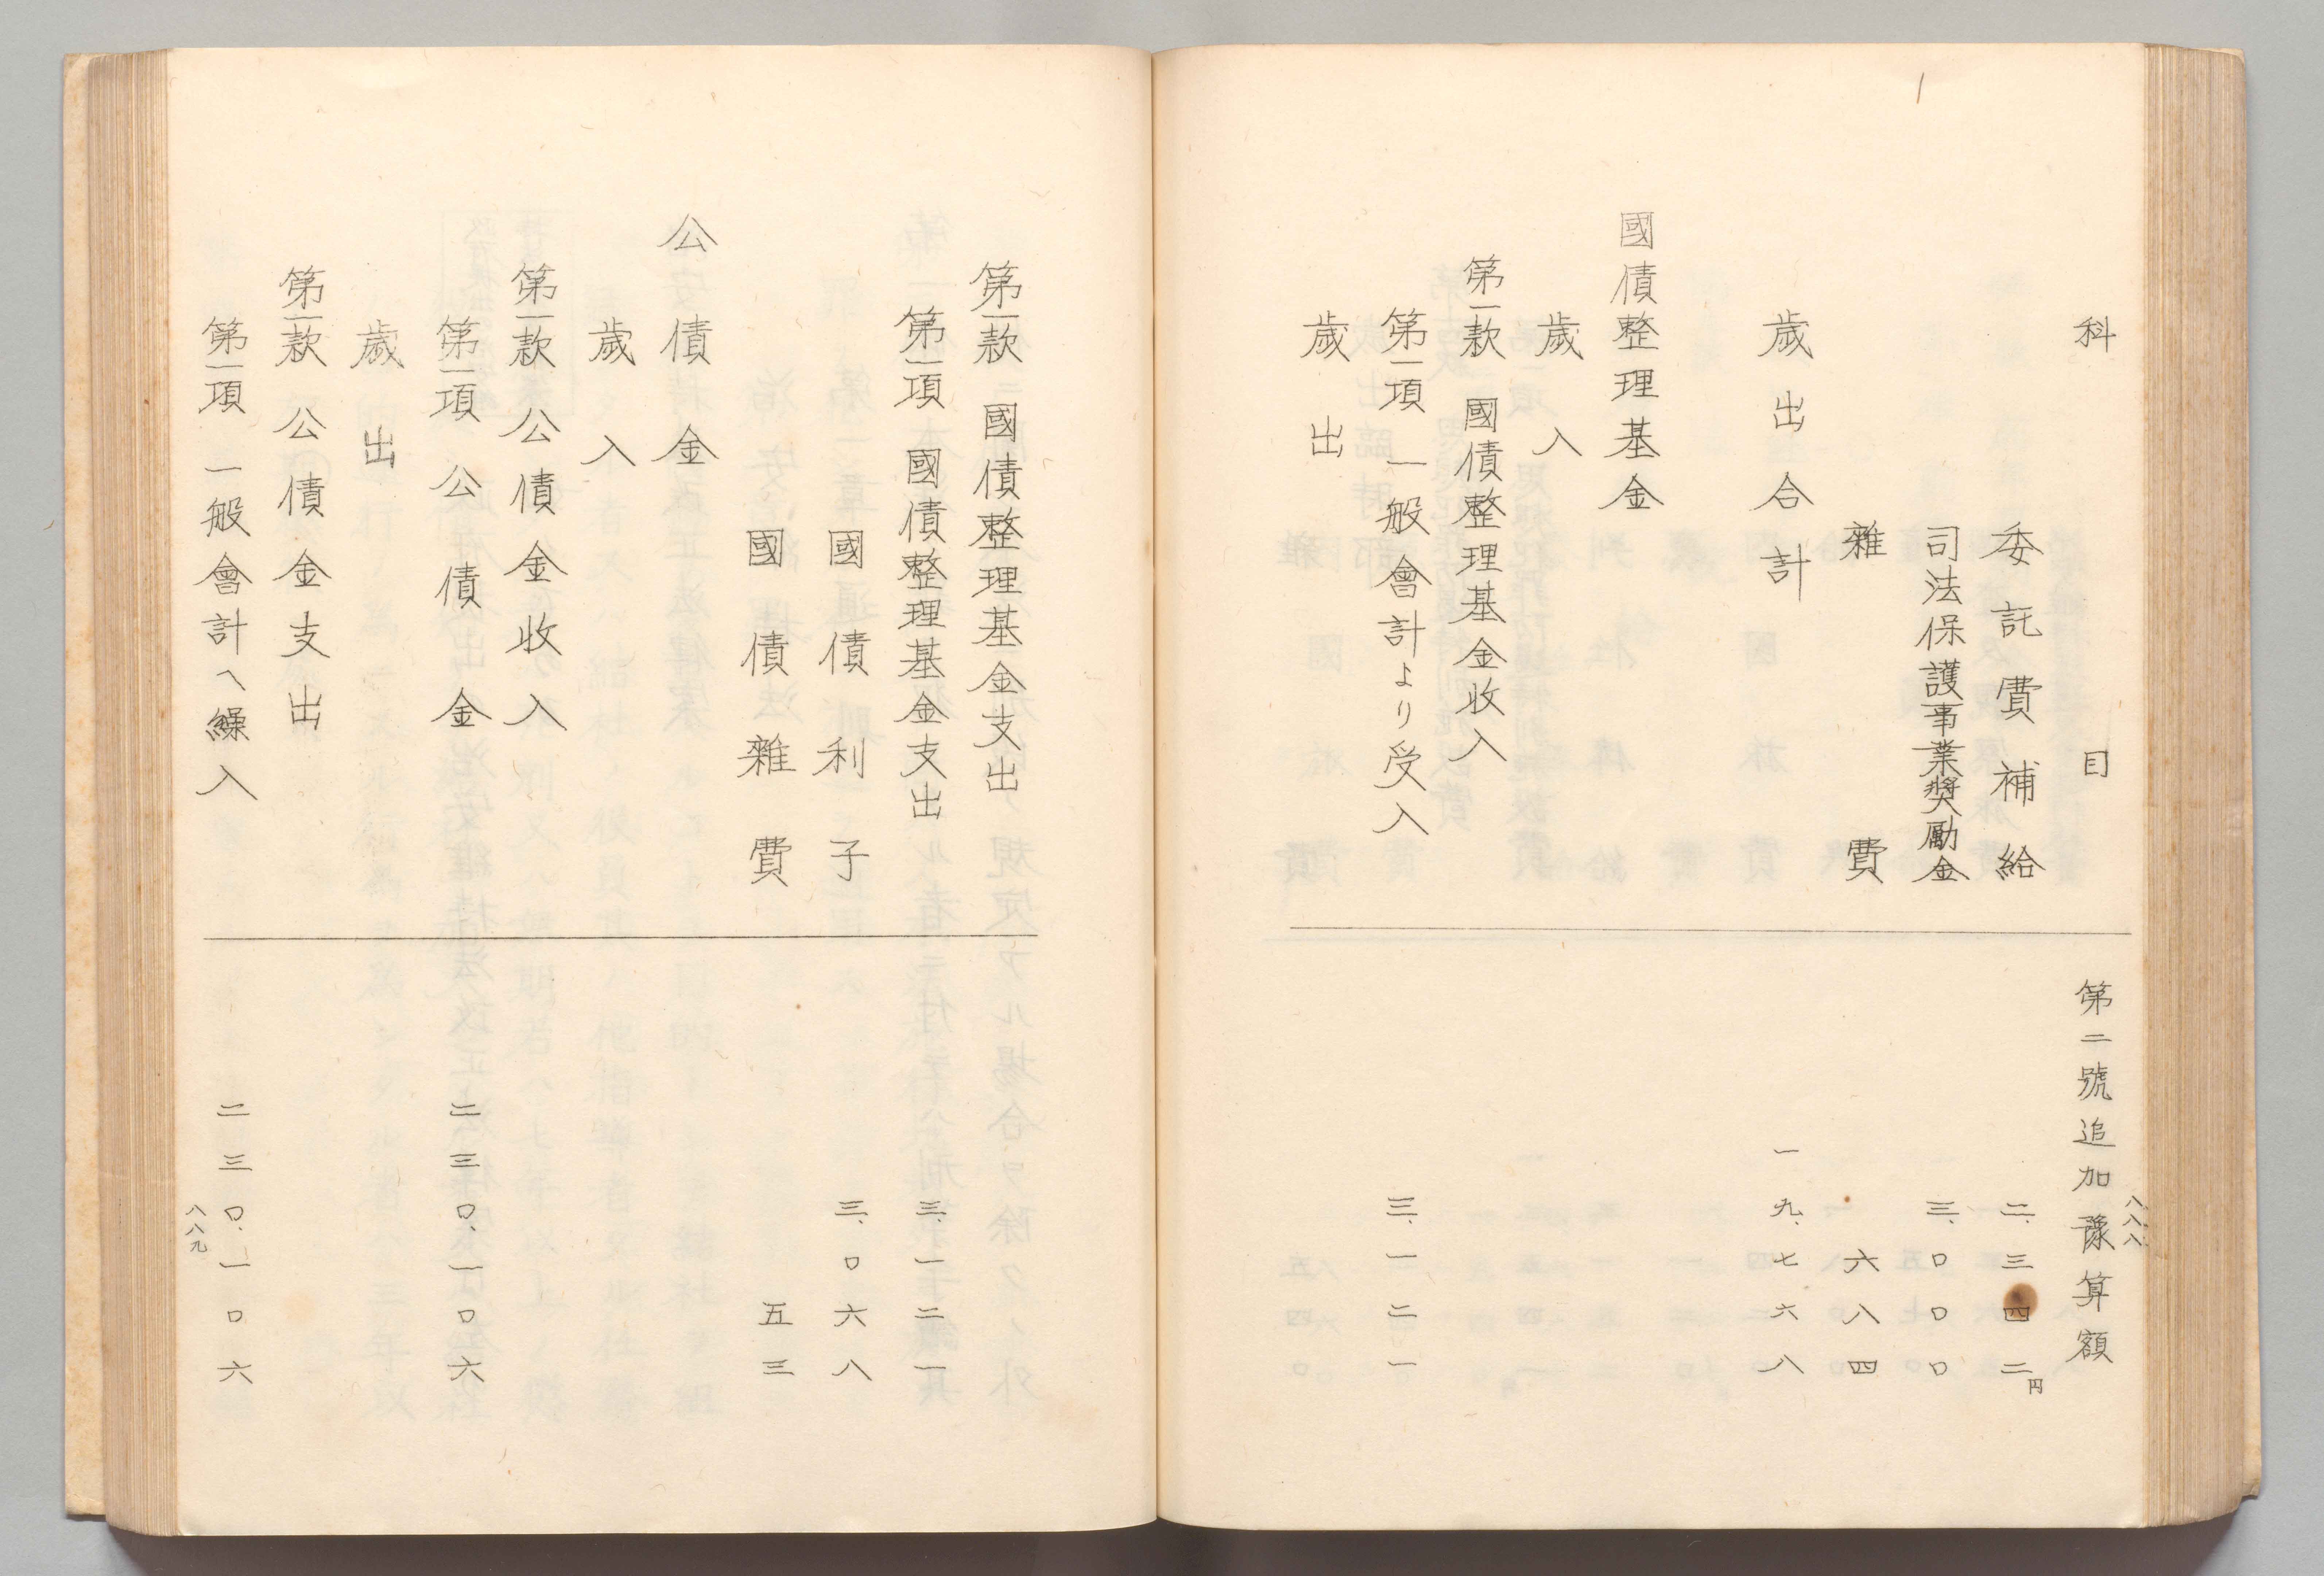 八八八
科目 第二號追加豫算額
委託費補給 二、三四二円
司法保護事業奬勵金 三、〇〇〇
雜費 六八四
歲出合計 一九、七六八
國債整理基金
歲入
第一款 國債整理基金收入
第一項 一般會計より受入 三、一二一
歲出
第一款 國債整理基金支出
第一項 國債整理基金支出 三、一二一
國債利子 三、〇六八
國債雜費 五三
公債金
歲入
第一款 公債金收入
第一項 公債金 二三〇、一〇六
歲出
第一款 公債金支出
第一項 一般會計へ繰入 二三〇、一〇六
八八九